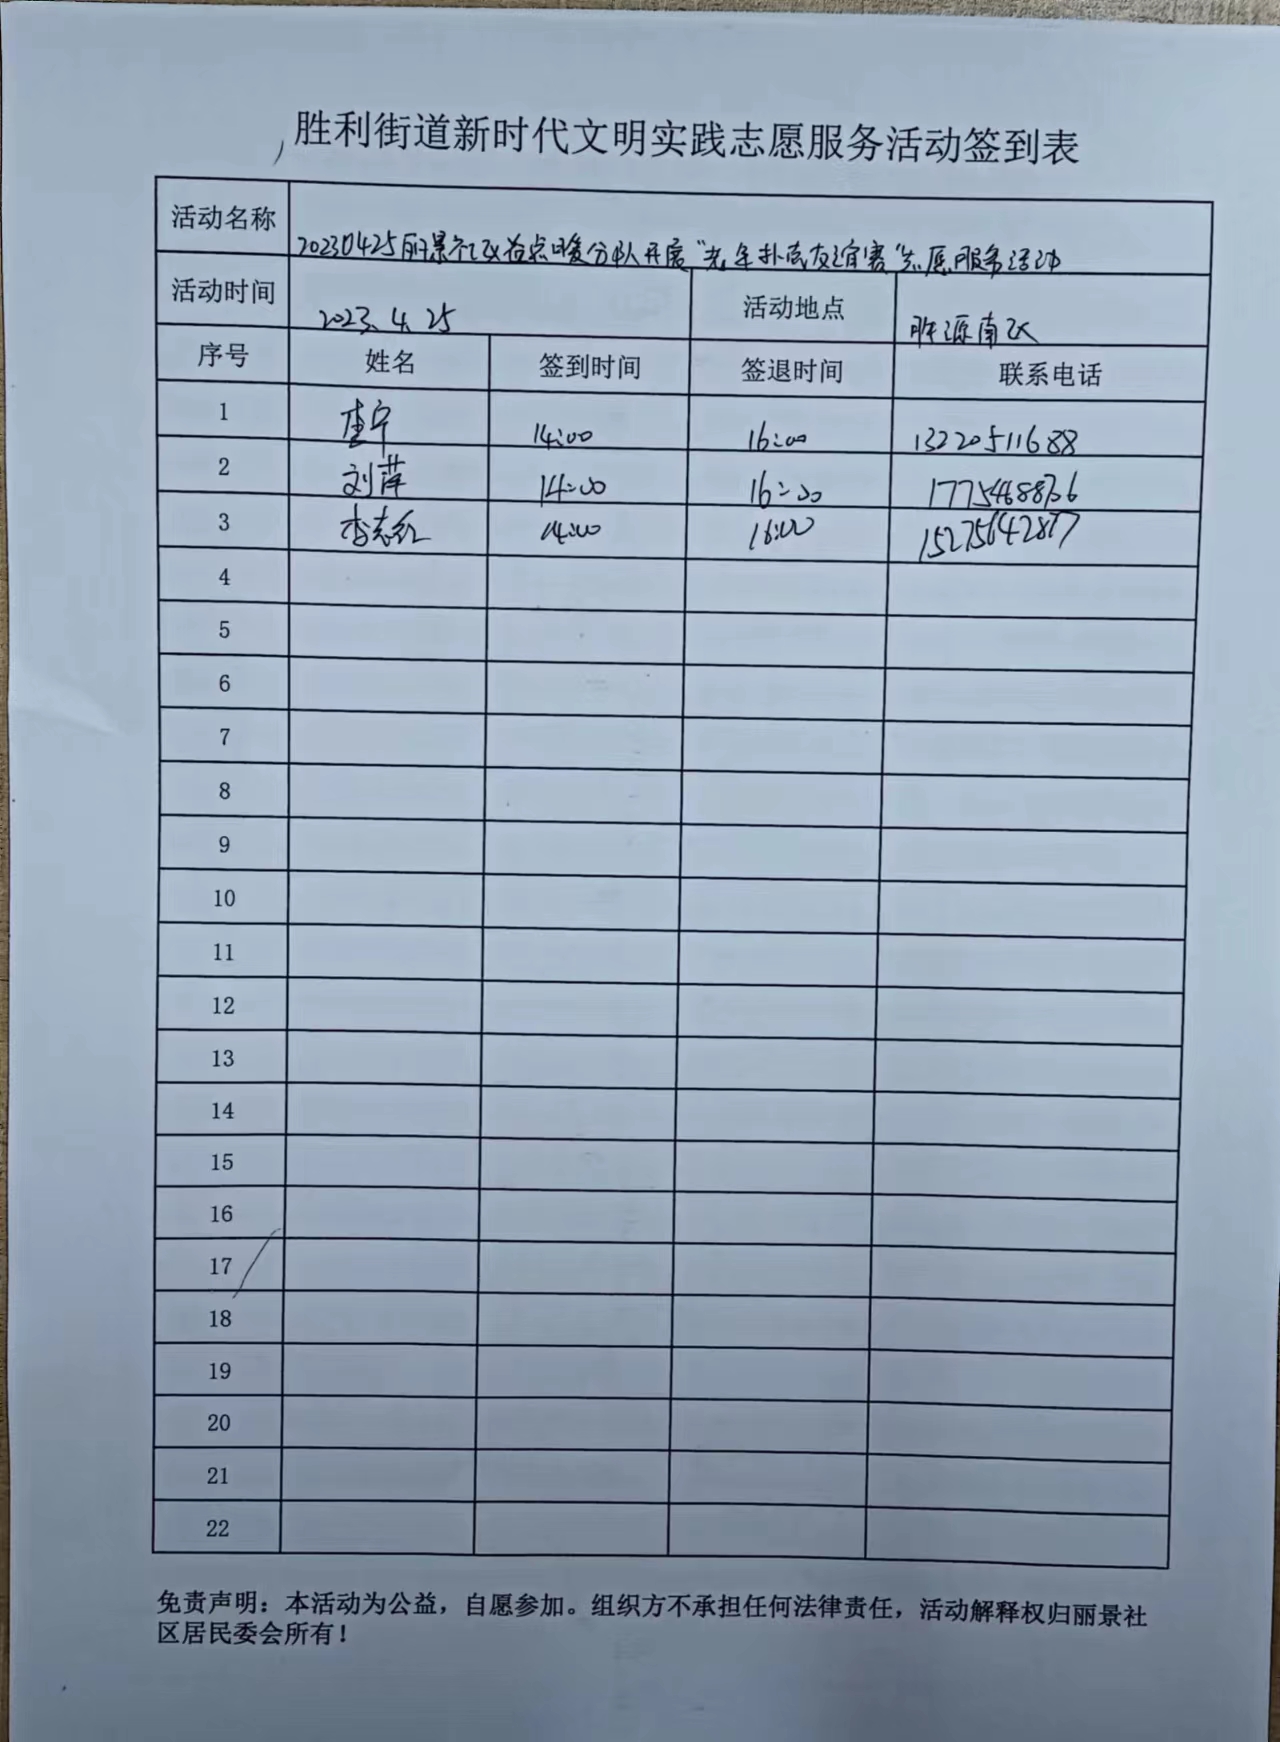 胜利街道新时代文明实践志愿服务活动签到表
活动名称 20230425丽景社区益点暖分队开展“老年扑克友谊赛”志愿服务活动
活动时间 2023.4.25 活动地点 胜源南区
序号 姓名 签到时间 签退时间 联系电话
1 14:00 16:00 13220511688
2 刘萍 14:00 16:00
3 李志红 14:00 16:00
4
5
6
7
8
9
10
11
12
13
14
15
16
17
18
19
20
21
22
免责声明：本活动为公益，自愿参加。组织方不承担任何法律责任，活动解释权归丽景社
区居民委会所有！